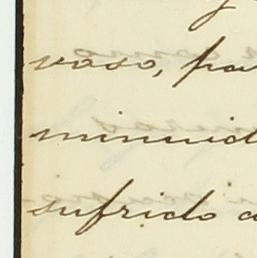 vaso, pa
minuid
sufrido a